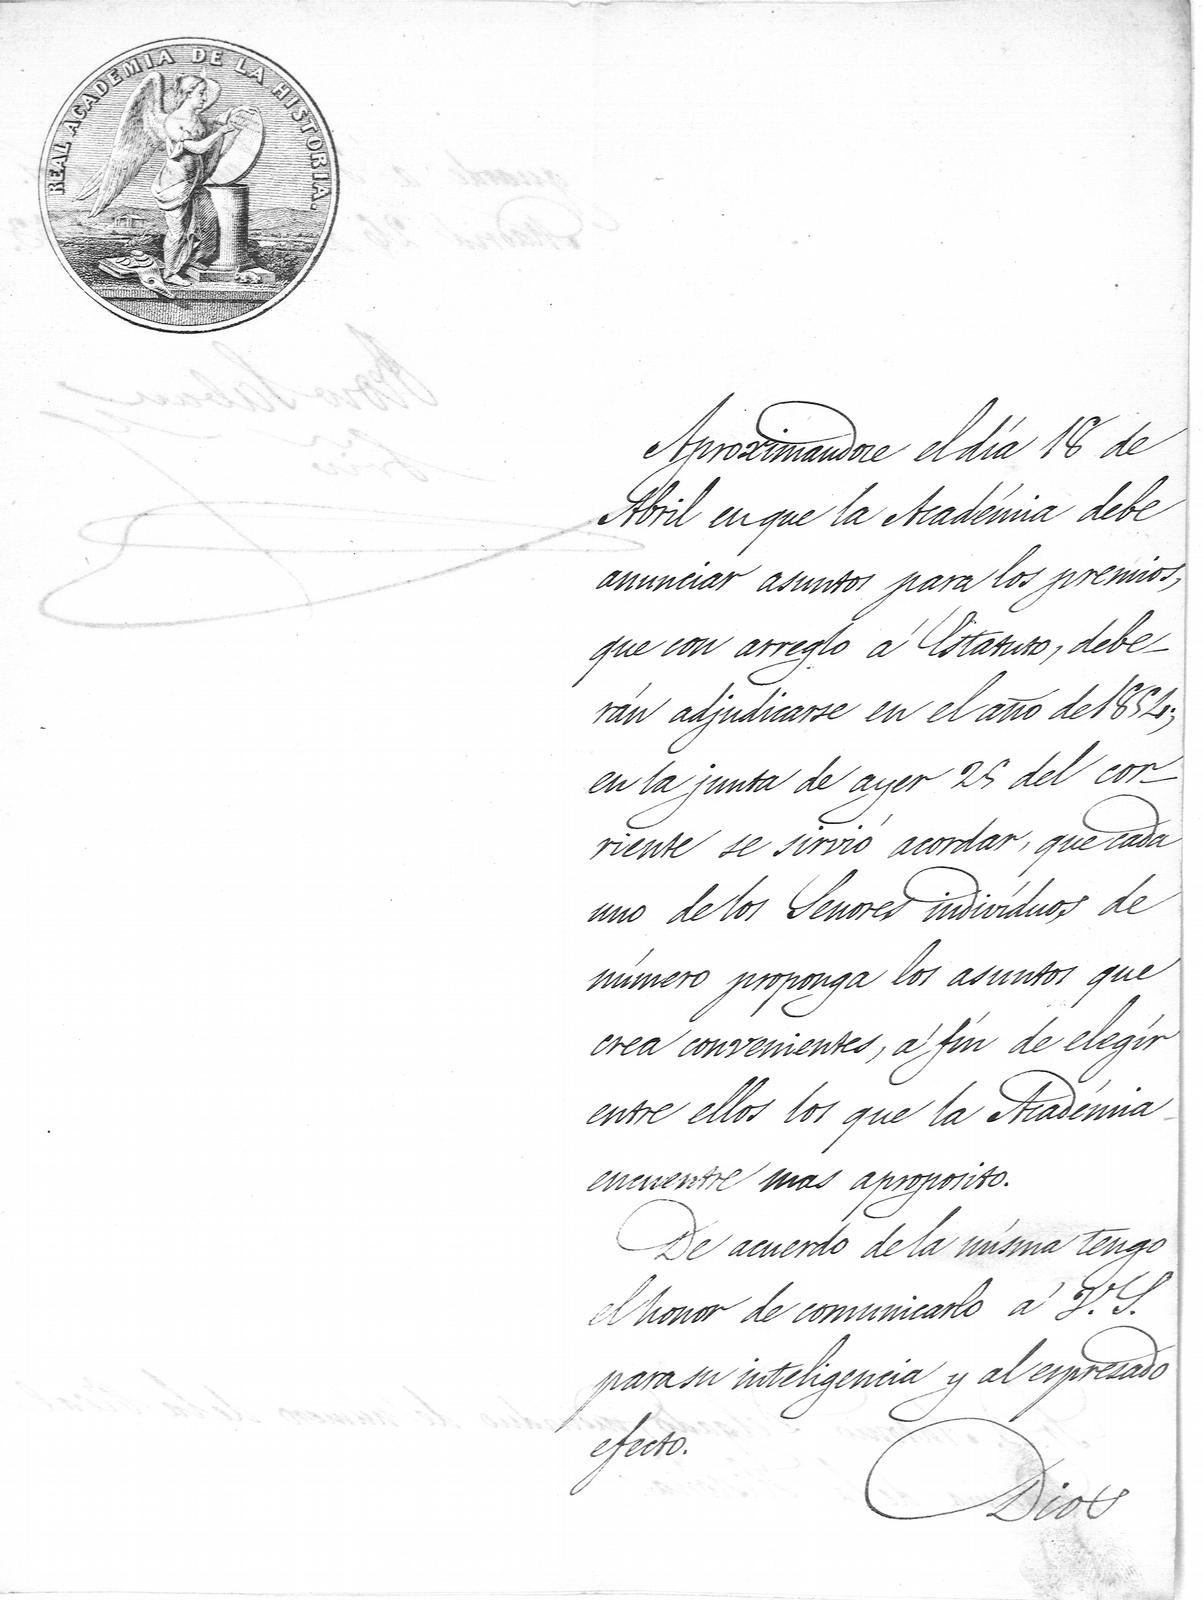 REAL ACADEMIA DE LA HISTORIA.
Aproximandose el día 18 de
Abril en que la Académia debe
anunciar asuntos para los premios,
que con arreglo á Estatuto, debe-
rán adjudicarse en el año de 1854;
en la junta de ayer 25 del cor-
riente se sirvió acordar, que cada
uno de los Senores indivíduos de
número proponga los asuntos que
crea convenientes, á fín de elegír
entre ellos los que la Académia
encuentre mas aproposito.
De acuerdo de la mísma tengo
el honor de comunicarlo á V. S.
para su inteligencia y al espresado
efecto.
Dios